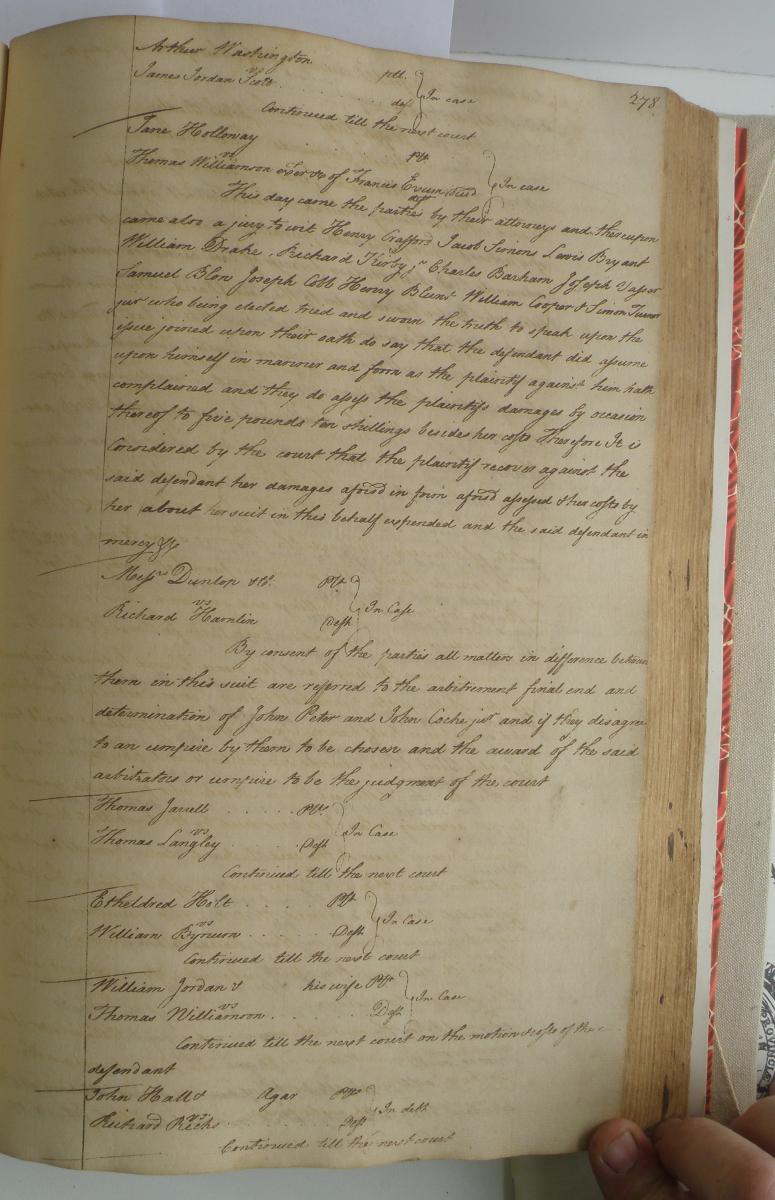 278
Arthur Washington plt.
vs In case
James Jordan Scott def
Continued till the next court
Jane Holloway Plt
vs In case
Thomas Williamson Exer &c of Francis Exum decd deft
This day came the parties by their attorneys and thereupon
came also a jury to wit Henry Crafford Jacob Simons Lewis Bryant
William Drake, Richard Kirby jr Charles Barham Joseph Vasser
Samuel Blow Joseph Cobb Henry Blunt William Cooper & Simon Turner
jur who being elected tried and sworn the truth to speak upon the
issue joined upon their oath do say that the defendant did assume
upon himself in manner and form as the plaintif against him hath
complained and they do assess the plaintifs damages by occasion
thereof to five pounds ten shillings besides her costs Therefore It is
Considered by the court that the plaintif recover against the
said defendant her damages aforesd in form aforesd assessed & her costs by
her about her suit in this behalf expended and the said defendant in
mercy &c
Messrs Dunlop & Co. Plt
vs In Case
Richard Hamlin Deft
By consent of the parties all matters in difference between
them in this suit are referred to the arbitrement final end and
determination of John Peter and John Cocke jur and if they disagree
to an umpire by them to be chosen and the award of the said
arbitrators or umpire to be the judgment of the court
Thomas Jarrell Plt
vs In Case
Thomas Langley Deft
Continued till the next court
Etheldred Holt Plt
vs In Case
William Bynum Deft
Continued till the next court
William Jordan & his wife Plt
vs In Case
Thomas Williamson Deft
Continued till the next court on the motion & costs of the
defendant
John Hall & Agar Plts
vs In debt
Richard Ricks Deft
Continued till the next court